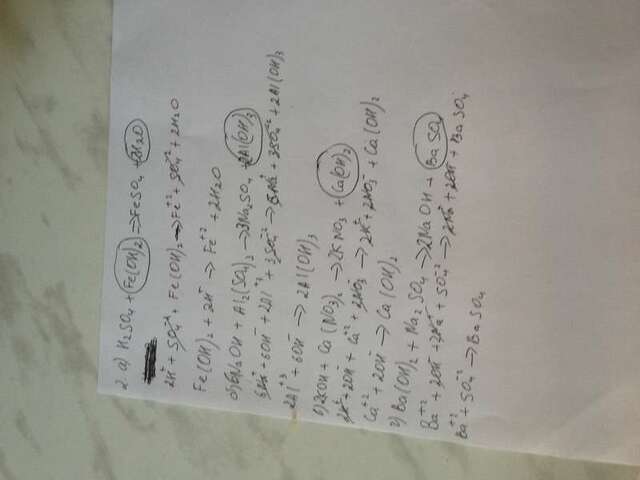 2. а) H₂SO₄ + Fe(OH)₂ ⇒ FeSO₄ + 2H₂O
2H⁺ + SO₄⁻² + Fe(OH)₂ → Fe⁺² + SO₄⁻² + 2H₂O
Fe(OH)₂ + 2H⁺ → Fe⁺² + 2H₂O
б) 6NaOH + Al₂(SO₄)₃ → 3Na₂SO₄ + 2Al(OH)₃
6Na⁺ + 6OH⁻ + 2Al⁺³ + 3SO₄⁻² → 6Na⁺ + 3SO₄⁻² + 2Al(OH)₃
2Al⁺³ + 6OH⁻ → 2Al(OH)₃
в) 2KOH + Ca(NO₃)₂ → 2KNO₃ + Ca(OH)₂
2K⁺ + 2OH⁻ + Ca⁺² + 2NO₃⁻ → 2K⁺ + 2NO₃⁻ + Ca(OH)₂
Ca⁺² + 2OH⁻ → Ca(OH)₂
г) Ba(OH)₂ + Na₂SO₄ → 2NaOH + BaSO₄
Ba⁺² + 2OH⁻ + 2Na⁺ + SO₄⁻² → 2Na⁺ + 2OH⁻ + BaSO₄
Ba⁺² + SO₄⁻² → BaSO₄